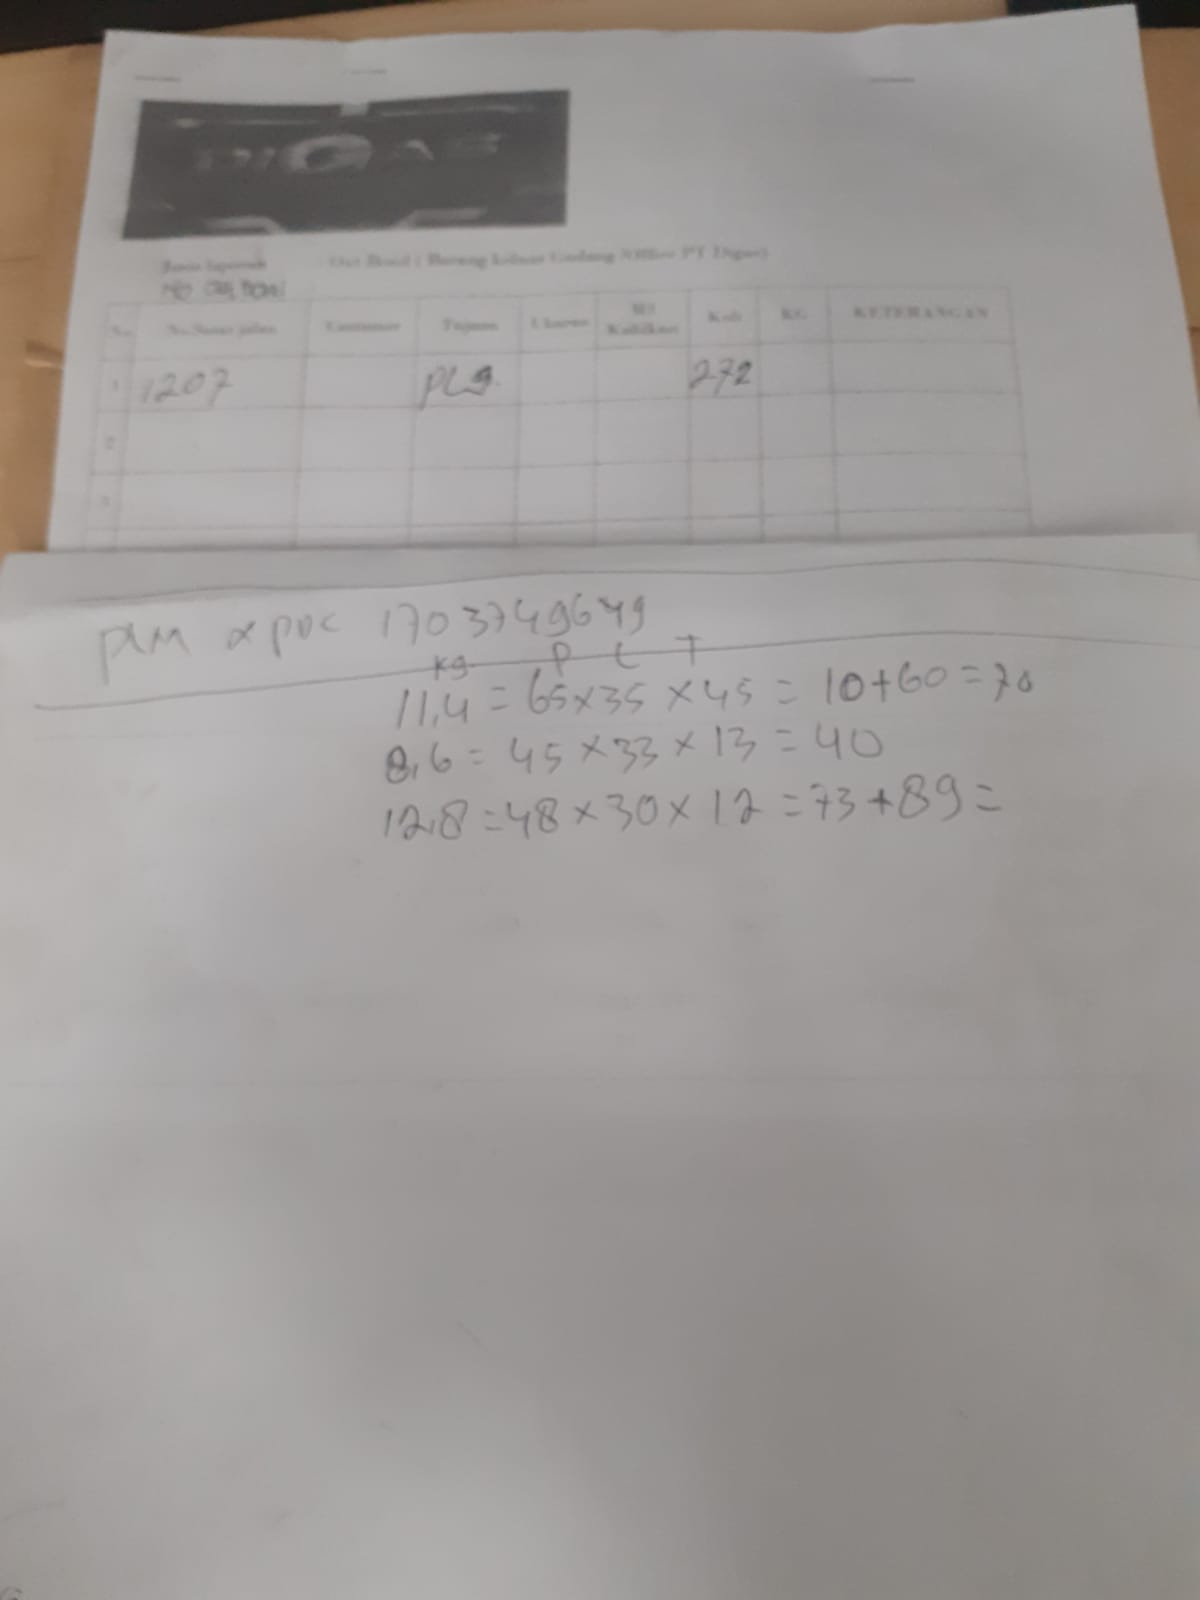 DIGAS
Jenis laporan : Out Bond ( Barang keluar Gudang
No
No Surat jalan Customer Tujuan Ukuran M3 Kubikasi Koli KG KETERANGAN
1 1207 PLg. 272
2
3
PLM 1703749649
kg P L T
11,4 = 65x35 x45 = 10+60=70
8,6= 45 x33 x 13 = 40
12,8=48 x 30x 12 =73+89=